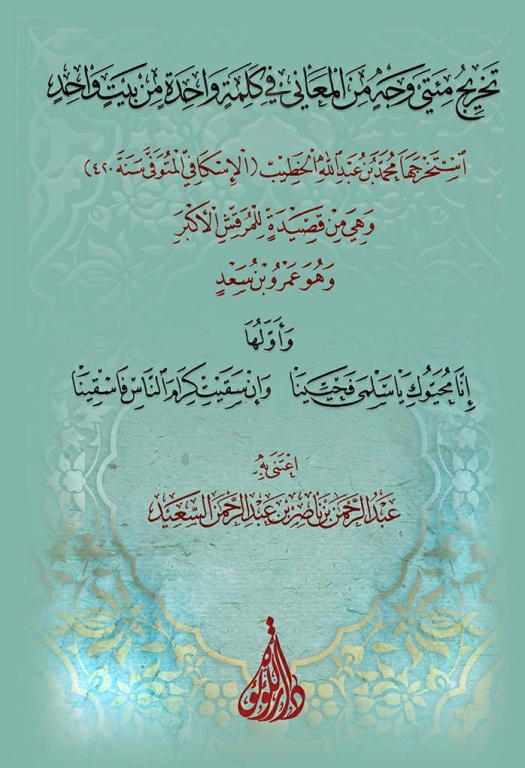 تَخْرِيجُ مِئَتَيْ وَجْهٍ مِنَ المَعَانِي فِي كَلِمَةٍ وَاحِدَةٍ مِنْ بَيْتٍ وَاحِدٍ
اسْتَخْرَجَهَا مُحَمَّدُ بْنُ عَبْدِ اللهِ الخَطِيبُ (الإِسْكَافِيُّ المُتَوَفَّى سَنَةَ ٤٢٠)
وَهِيَ مِنْ قَصِيدَةٍ لِلْمُرَقِّشِ الأَكْبَرِ
وَهُوَ عَمْرُو بْنُ سَعْدٍ
وَأَوَّلُهَا
إِنَّا مُحَيُّوكِ يَا سَلْمَى فَحَيِّينَا وَإِنْ سَقَيْتِ كِرَامَ النَّاسِ فَاسْقِينَا
اعْتَنَى بِهِ
عَبْدُ الرَّحْمَنِ بْنُ نَاصِرِ بْنِ عَبْدِ الرَّحْمَنِ السَّعِيدِ
دار اللؤلؤة